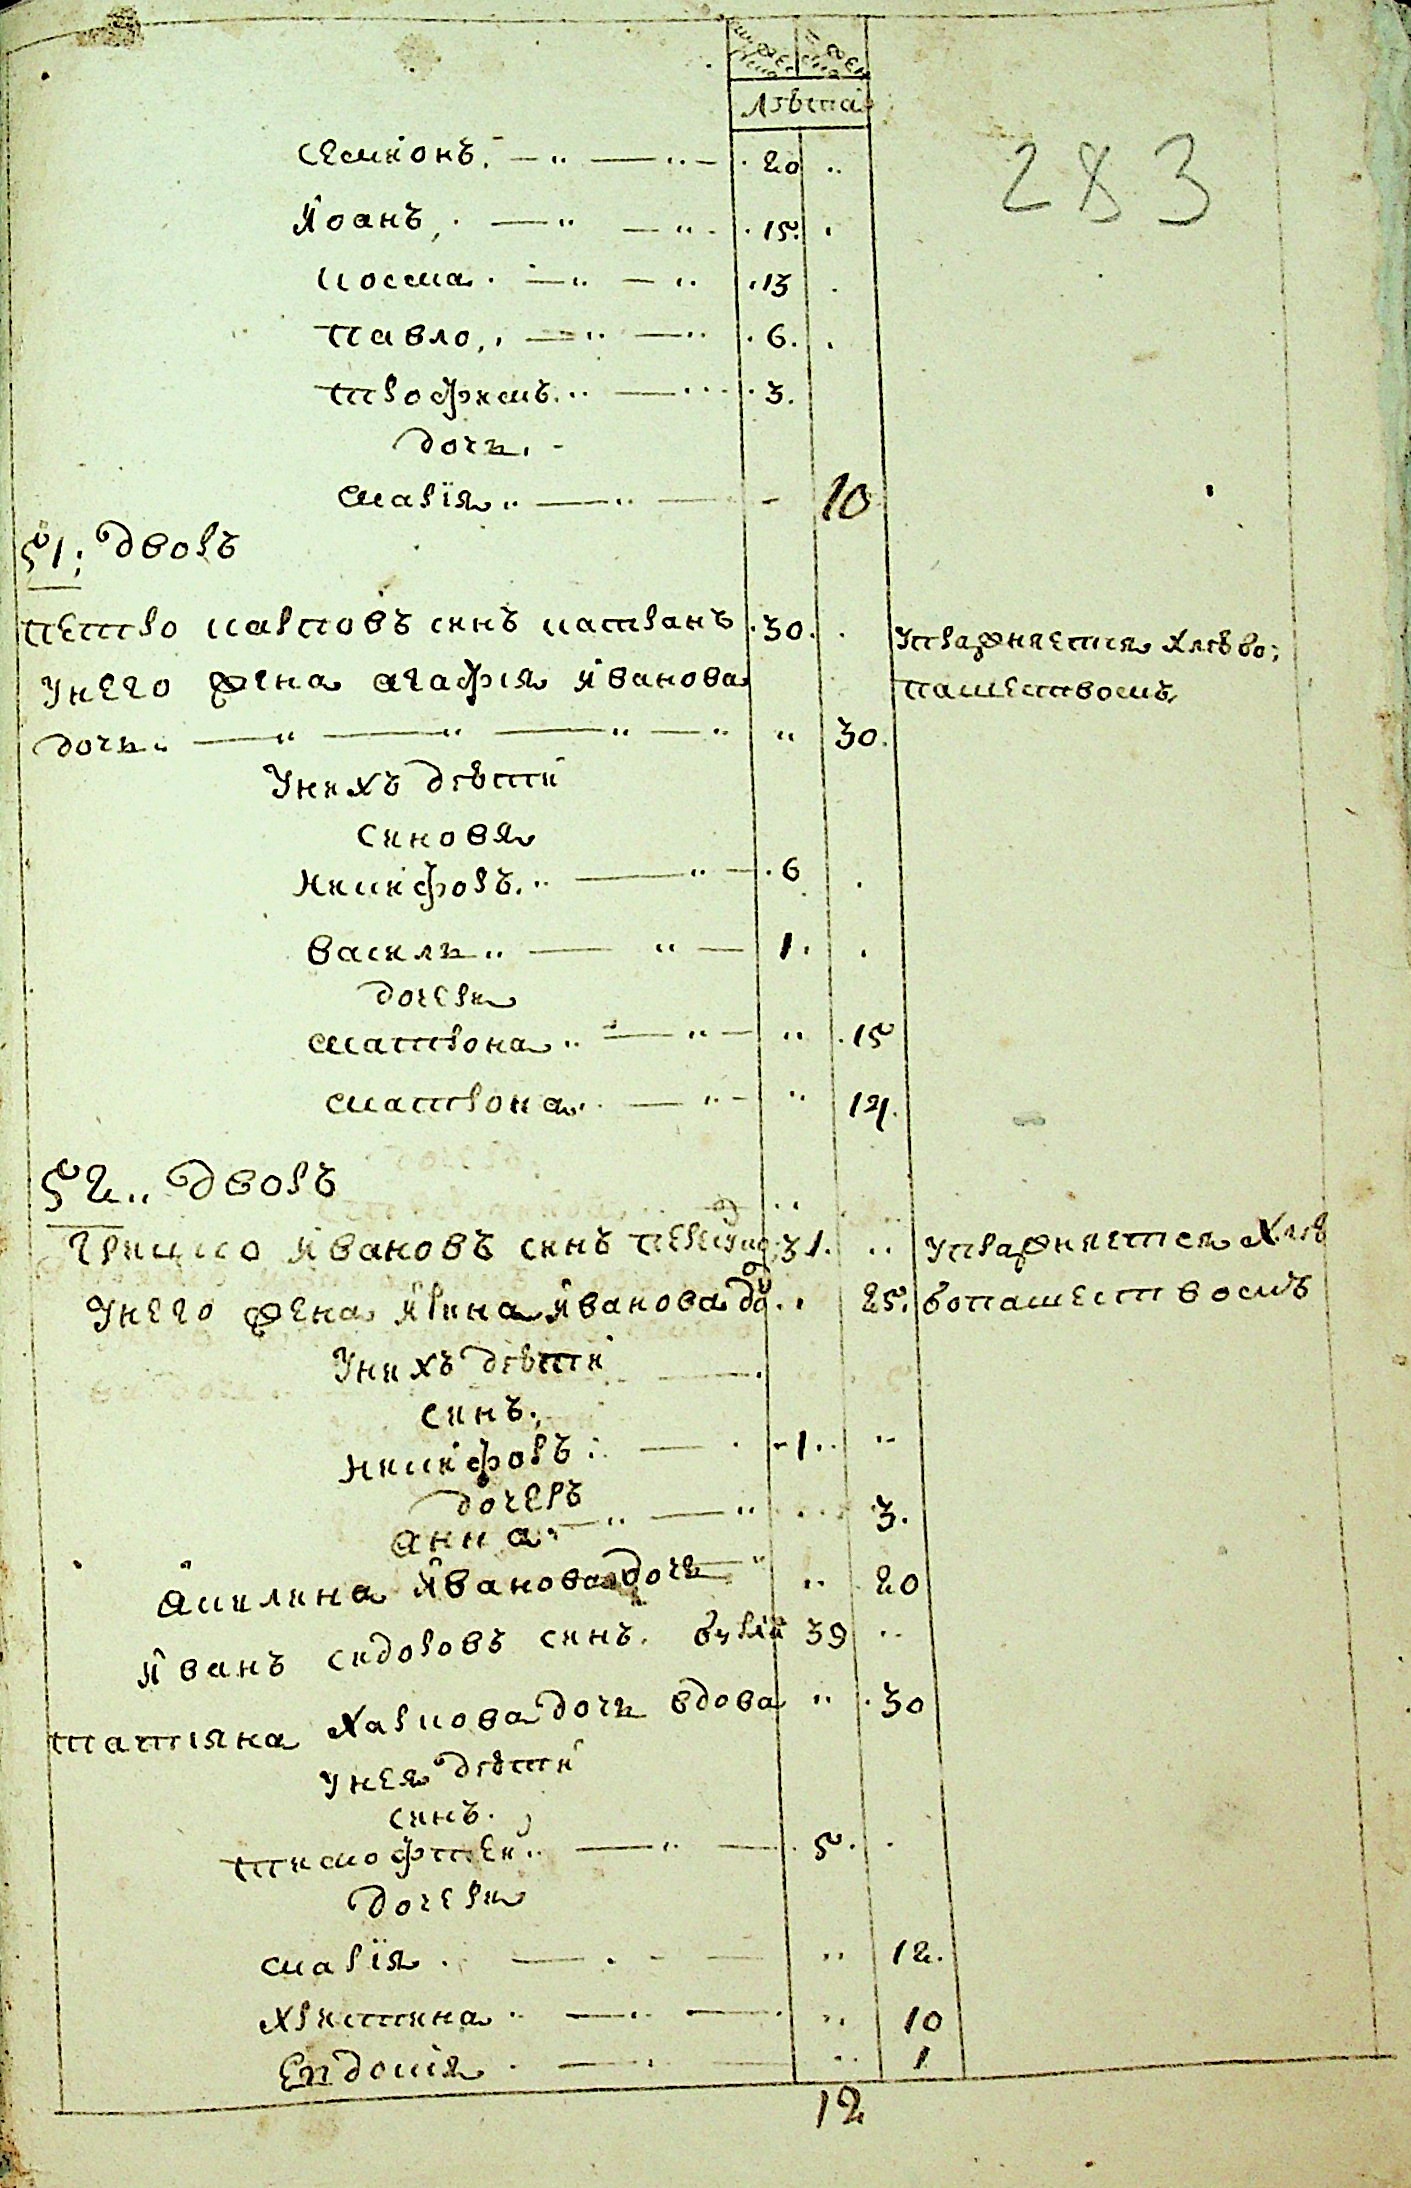 лѣта
283
семионъ. 20
иоанъ, 15.
косма. 13
павло, 6.
трофимъ. 3.
дочъ.
мария 10
51; дворъ
петро карповъ синъ катранъ 30. упражняется хлѣбо;
унего жена агафия иванова пашеством.
дочъ 30.
унихъ дѣти
синовя
никифоръ. 6
василъ 1.
дочери
матрона 15
матрона 14.
52 дворъ
грицко ивановъ синъ 31. упражняется хлѣ
унего жена ирина иванова до 25. бопашествомъ
унихъ дѣти
синъ.
никифоръ 1
дочеръ
анна 3.
акилина иванова дочъ 20
иванъ сидоровъ синъ. 39
татияна карпова дочъ вдова 30
унея дѣти
синъ.
тимофтей 5.
дочери
мария 12.
христина 10
Евдокия 1
12